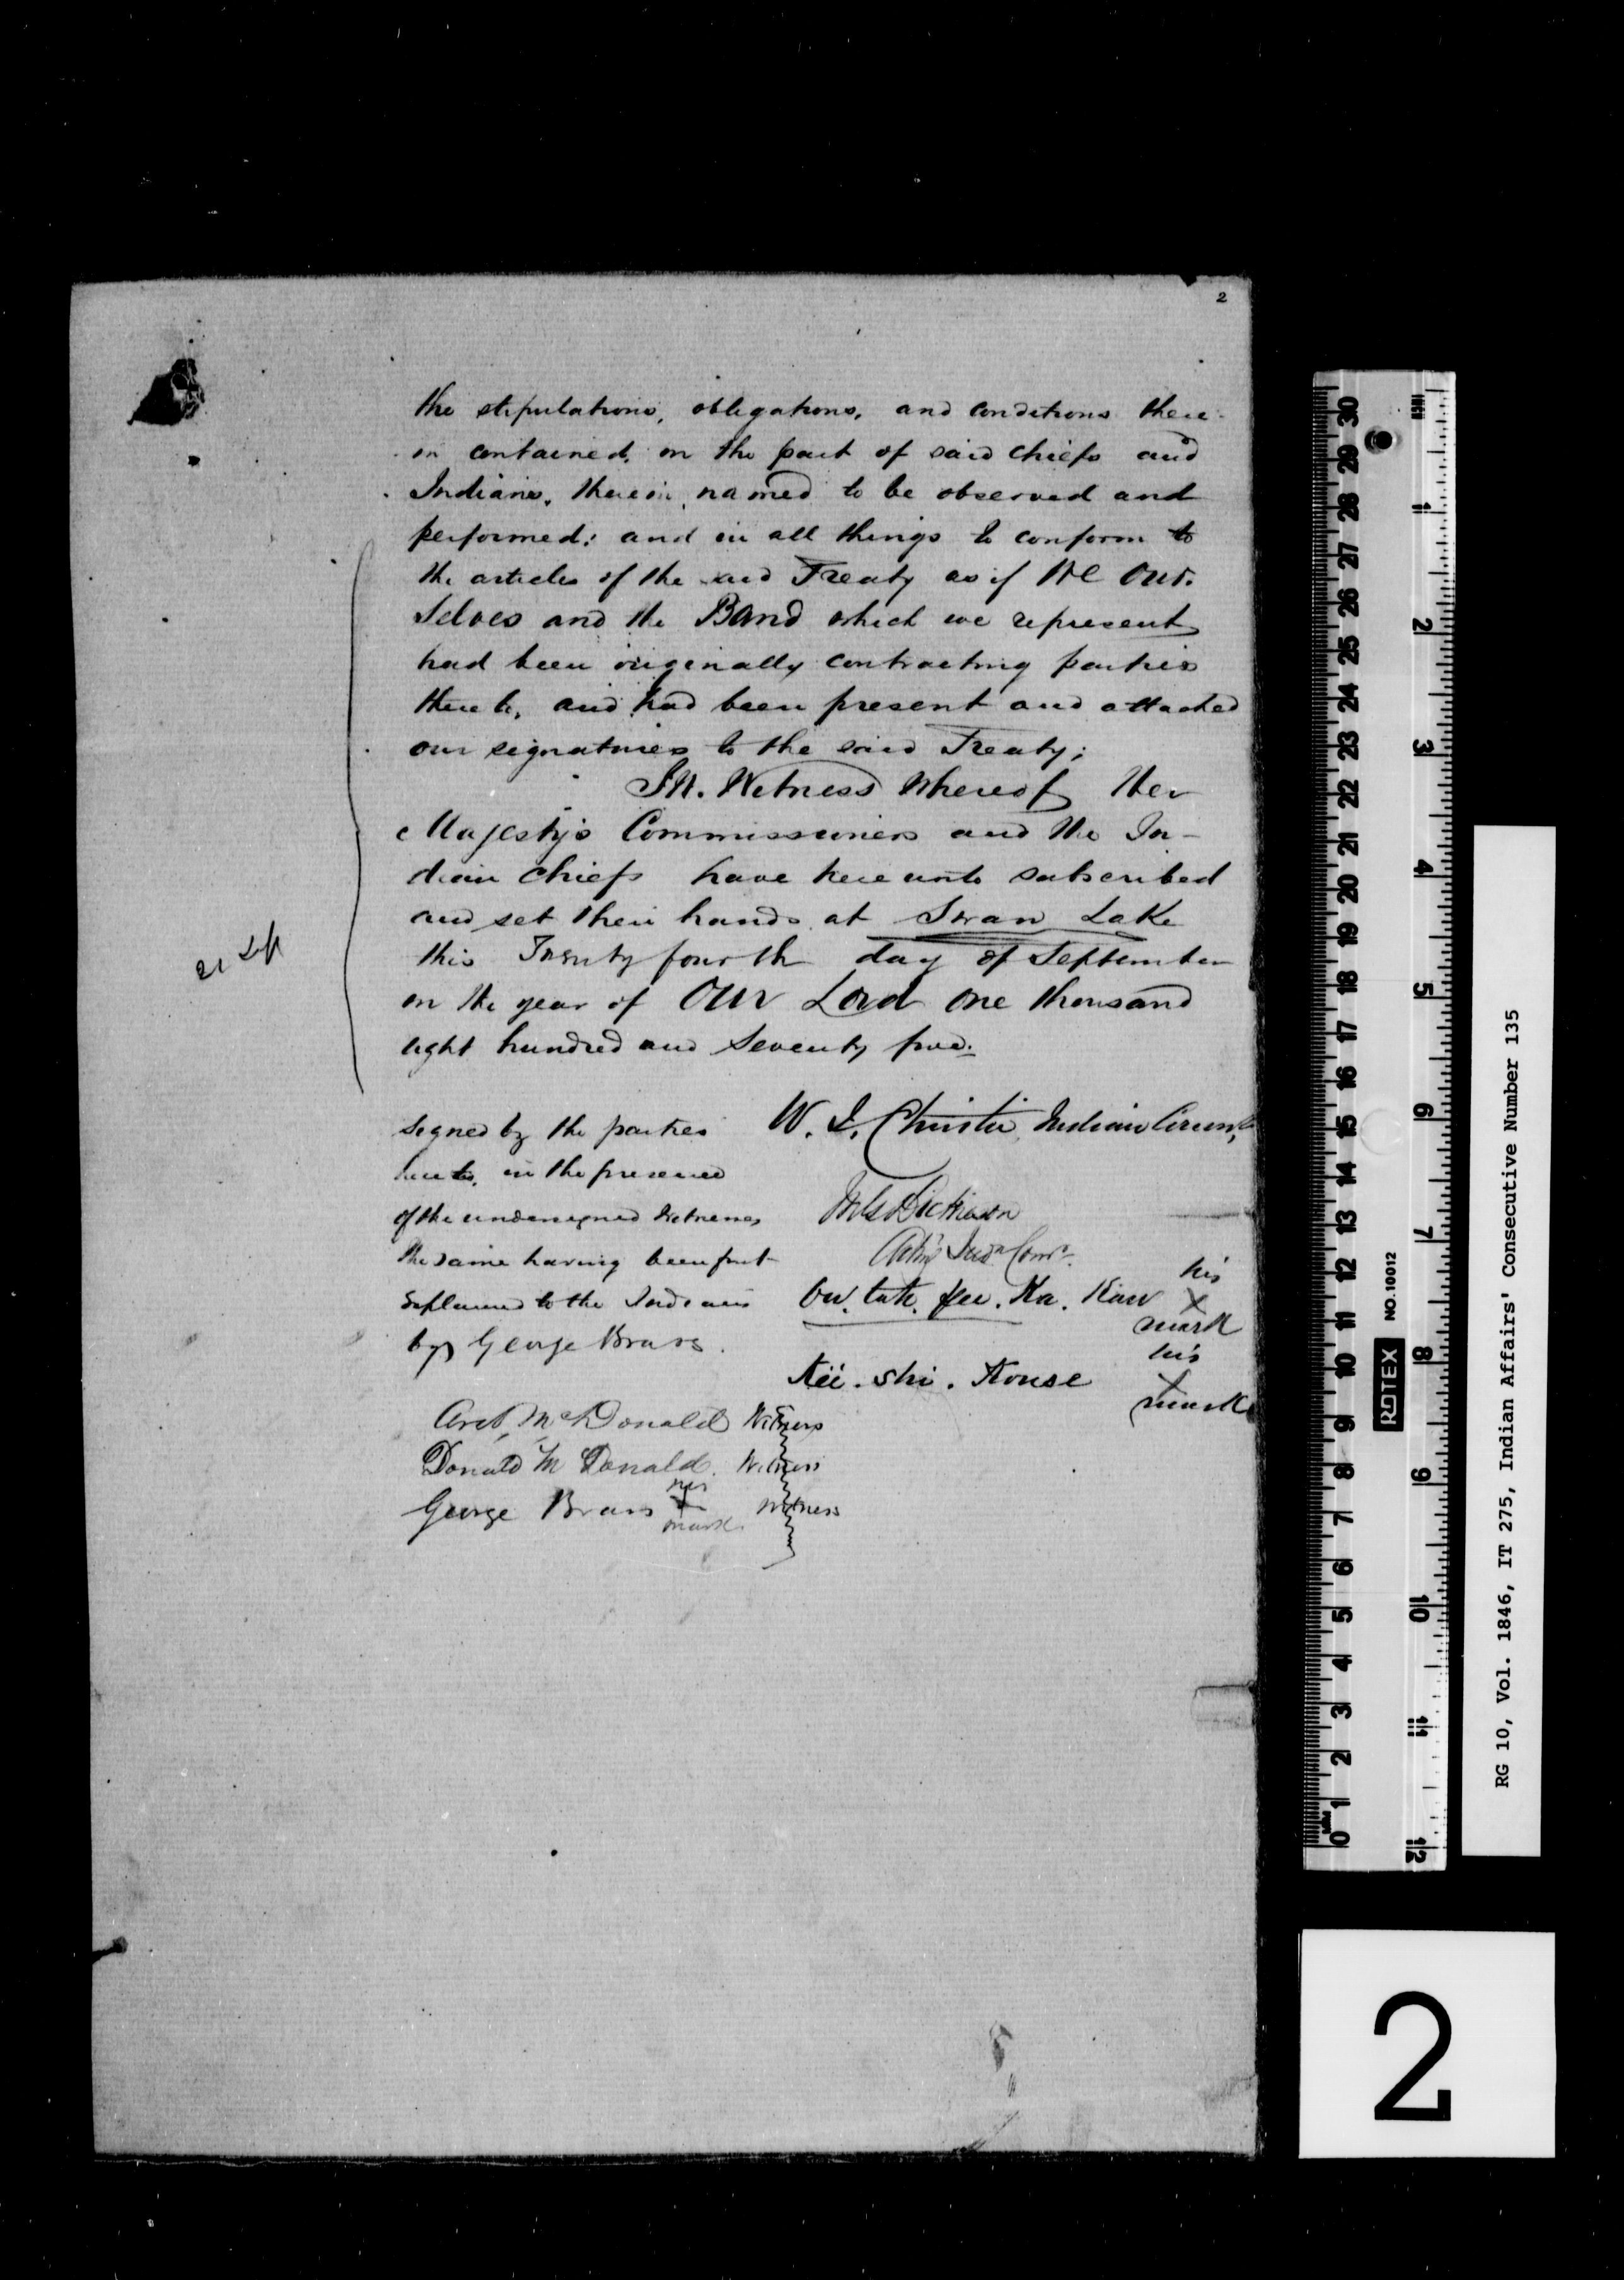 2
the stipulations, obligations, and conditions there-
in contained, on the part of said chiefs and
Indians, therein named to be observed and
performed; and in all things to conform to
the articles of the said Treaty as if We Our-
selves and the Band which we represent
had been originally contracting parties
thereto, and had been present and attached
our signatures to the said Treaty;
In. Witness Whereof Her
Majesty's Commissioners and the In-
dian Chiefs have hereunto subscribed
and set their hands at Swan Lake
this Twenty fourth day of September
in the year of Our Lord one thousand
eight hundred and Seventy five.
Signed by the parties
hereto, in the presence
of the undersigned Witnesses
the same having been first
Explained to the Indians
by George Brass.
W. J. Christie, Indian Comm.
Dickieson
Actg Indn Comr.
Ow. tah. pee. Ka. Kaw his
X
mark
Kii. shi. Kouse his
X
mark
Arch McDonald Witness
Donald McDonald. Witness
George Brass his X mark Witness
RG 10, Vol. 1846, IT 275, Indian Affairs' Consecutive Number 135
INCH 1 2 3 4 5 6 7 8 9 10 11 12
30 29 28 27 26 25 24 23 22 21 20 19 18 17 16 15 14 13 12 11 10 9 8 7 6 5 4 3 2 1 0
NO. 10012
2